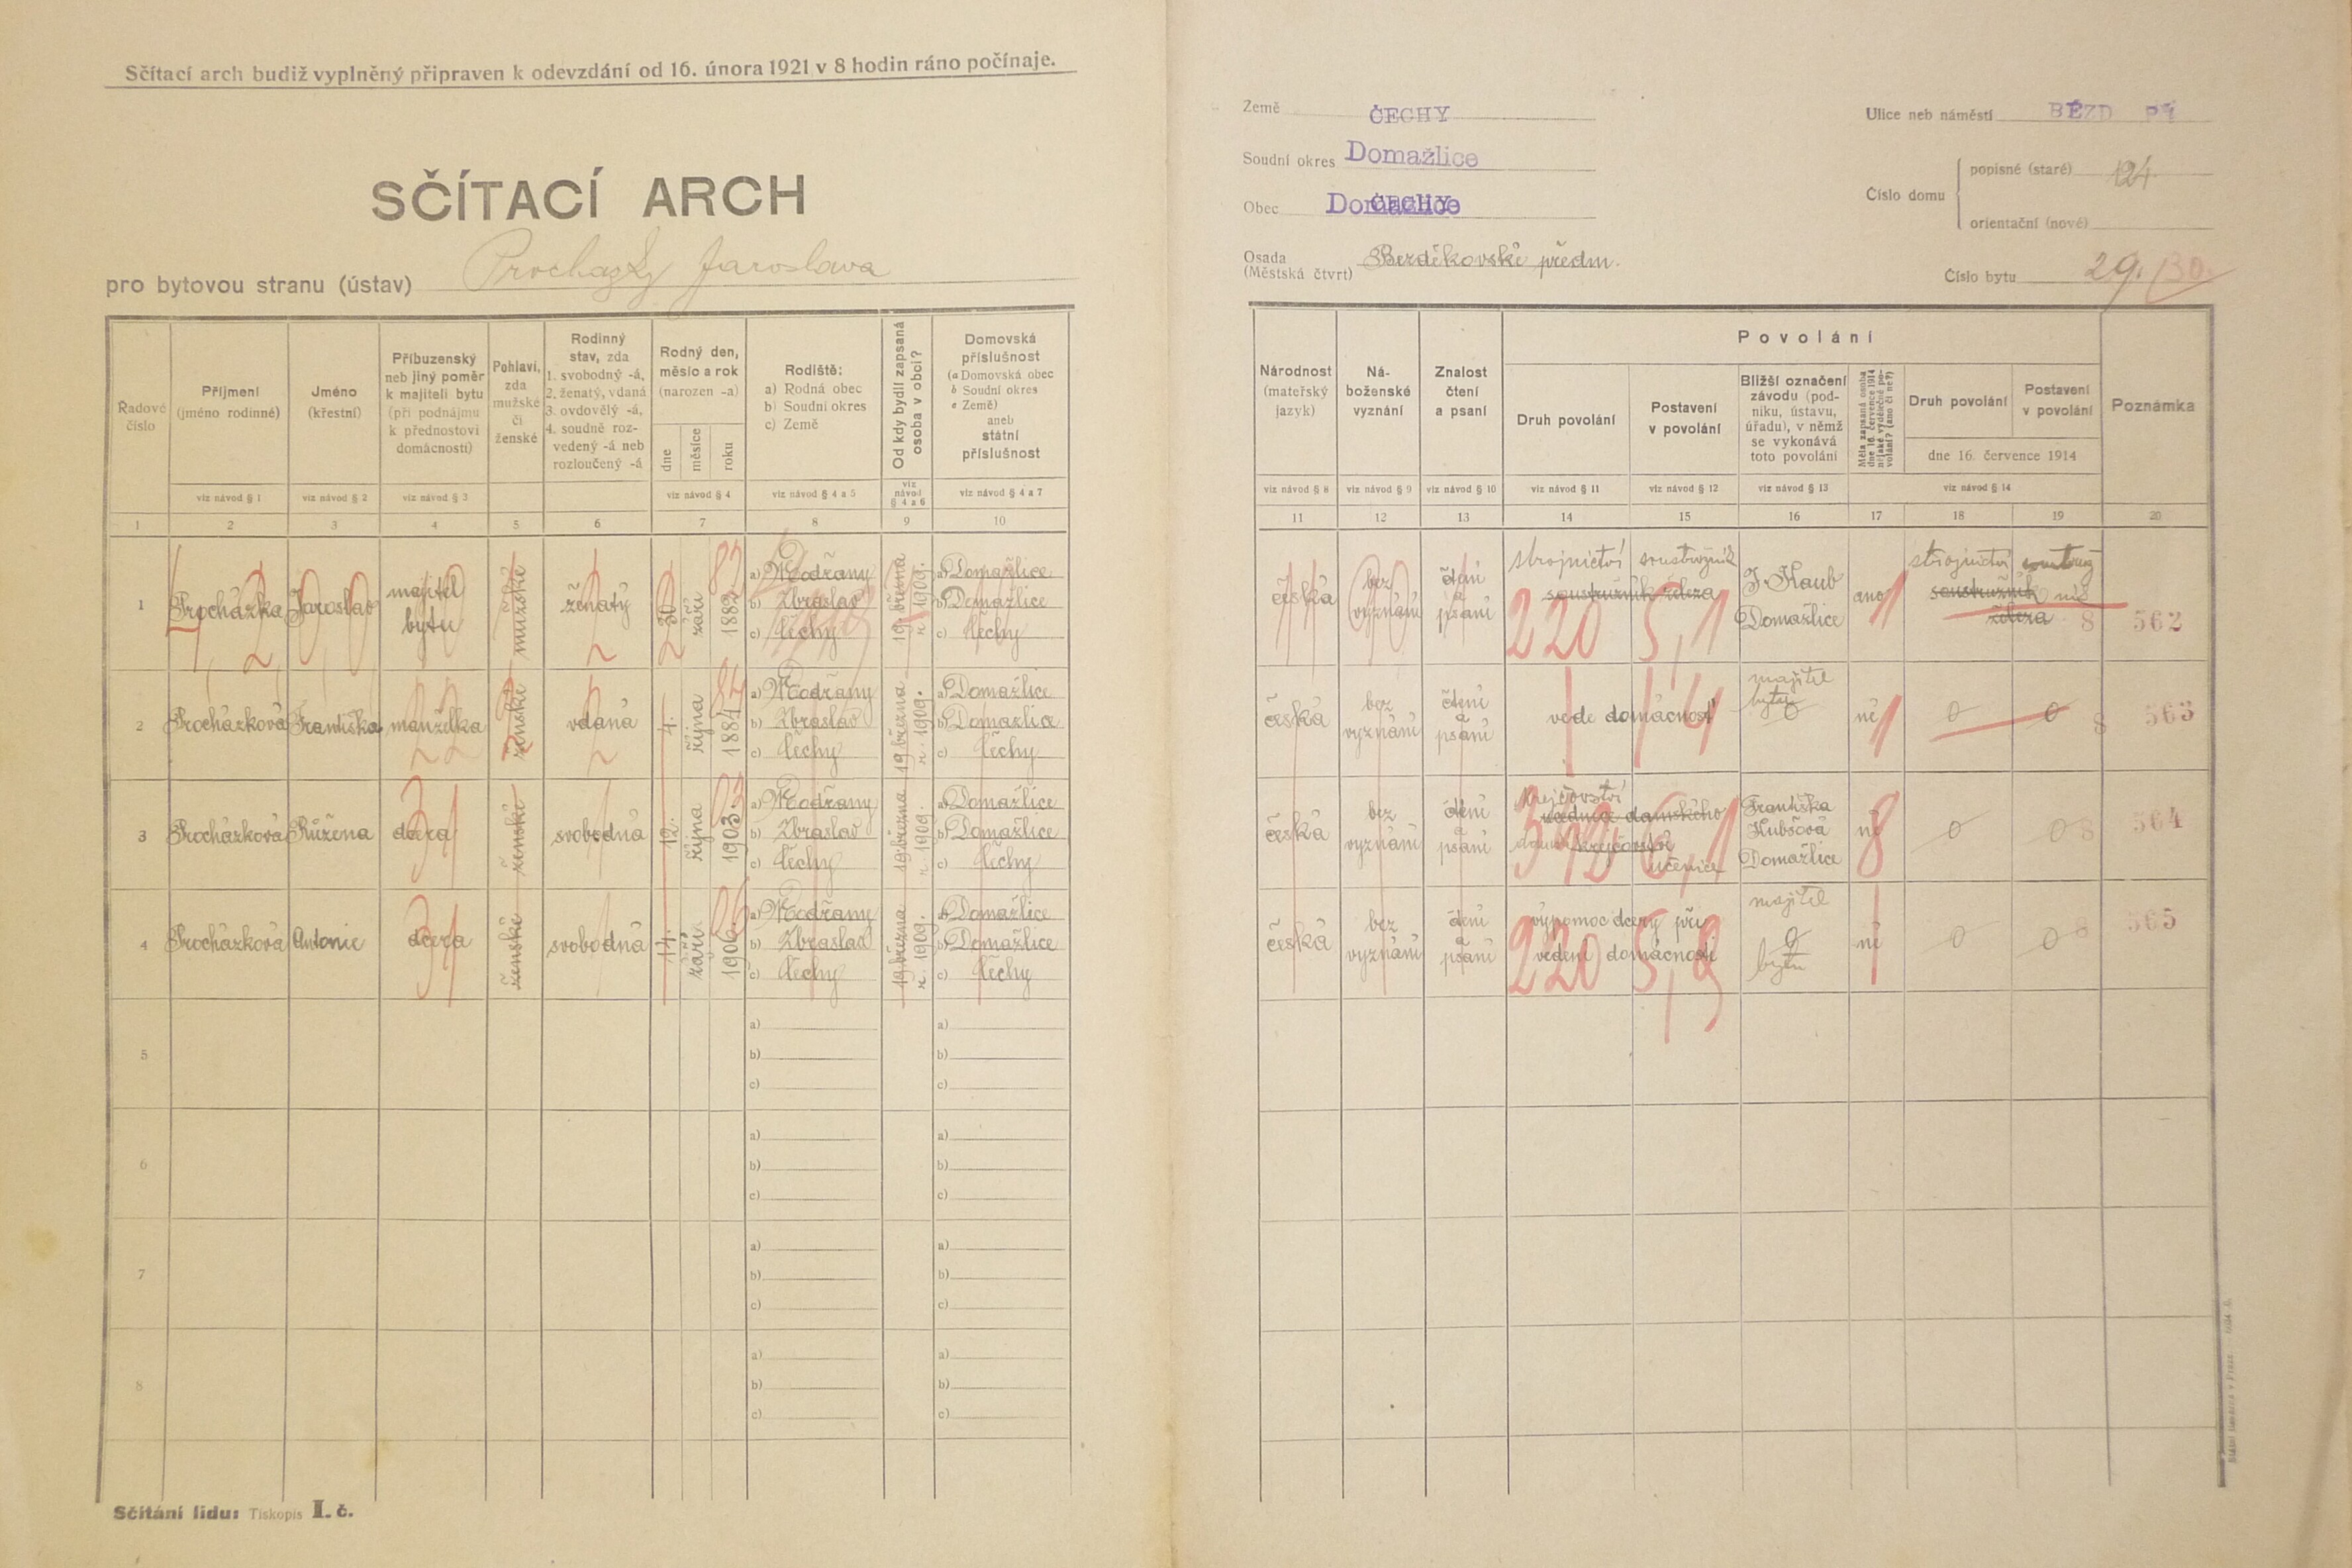 Sčítací arch budiž vyplněný připraven k odevzdání od 16. února 1921 v 8 hodin ráno počínaje.
SČÍTACÍ ARCH
pro bytovou stranu (ústav) Procházky Jaroslava
Země ČECHY
Soudní okres Domažlice
Obec Domažlice ČECHY
Osada
(Městská čtvrť) Bezděkovské předm.
Ulice neb náměstí BEZD PŘ
Číslo domu
popisné (staré) 124
orientační (nové)
Číslo bytu 29. 30.
Řadové
číslo
Příjmení
(jméno rodinné)
Jméno
(křestní)
Příbuzenský
neb jiný poměr
k majiteli bytu
(při podnájmu
k přednostovi
domácnosti)
Pohlaví,
zda
mužské
či
ženské
Rodinný
stav, zda
1. svobodný -á,
2. ženatý, vdaná
3. ovdovělý -á,
4. soudně roz-
vedený -á neb
rozloučený -á
Rodný den,
měsíc a rok
(narozen -a)
dne
měsíce
roku
Rodiště:
a) Rodná obec
b) Soudní okres
c) Země
Od kdy bydlí zapsaná
osoba v obci?
Domovská
příslušnost
(a Domovská obec
b Soudní okres
c Země)
aneb
státní
příslušnost
viz návod § 1
viz návod § 2
viz návod § 3
viz návod § 4
viz návod § 4 a 5
viz
návod
§ 4 a 6
viz návod § 4 a 7
1 2 3 4 5 6 7 8 9 10
Národnost
(mateřský
jazyk)
Ná-
boženské
vyznání
Znalost
čtení
a psaní
Povolání
Druh povolání
Postavení
v povolání
Bližší označení
závodu (pod-
niku, ústavu,
úřadu), v němž
se vykonává
toto povolání
Měla zapsaná osoba
dne 16. července 1914
nějaké výdělečné po-
volání? (ano či ne?)
Druh povolání
Postavení
v povolání
dne 16. července 1914
Poznámka
viz návod § 8
viz návod § 9
viz návod § 10
viz návod § 11
viz návod § 12
viz návod § 13
viz návod § 14
11 12 13 14 15 16 17 18 19 20
1 Procházka Jaroslav majitel bytu mužské ženatý 30 září 1882 82
a) Modřany
b) Zbraslav
c) Čechy
19 března r. 1909.
a) Domažlice
b) Domažlice
c) Čechy
česká
bez vyznání
čtení a psaní
strojnictví soustružník
soustružník železa
220 5,1
J. Kaub
Domažlice
ano
strojnictví
soustružník
železa
8 562
2 Procházková Františka manželka ženské vdaná 4. října 1884 84
a) Modřany
b) Zbraslav
c) Čechy
19 března r. 1909.
a) Domažlice
b) Domažlice
c) Čechy
česká
bez vyznání
čtení a psaní
vede domácnost
majitel
bytu
0
ne 0 0 8 563
3 Procházková Růžena dcera ženské svobodná 12. října 1903. 03
a) Modřany
b) Zbraslav
c) Čechy
19 března r. 1909.
a) Domažlice
b) Domažlice
c) Čechy
česká
bez vyznání
čtení a psaní
krejčovství
damského
krejčovství
učenice
Františka
Domažlice
ne 8 0 0 8 564
4 Procházková Antonie dcera ženské svobodná 14. září 1906 06
a) Modřany
b) Zbraslav
c) Čechy
19 března r. 1909.
a) Domažlice
b) Domažlice
c) Čechy
česká
bez vyznání
čtení a psaní
výpomoc dcery při
vedení domácnosti
220 5,9
majitel
0
bytu
ne 0 0 8 565
5
a)
b)
c)
a)
b)
c)
6
a)
b)
c)
a)
b)
c)
7
a)
b)
c)
a)
b)
c)
8
a)
b)
c)
a)
b)
c)
Sčítání lidu: Tiskopis I. č.